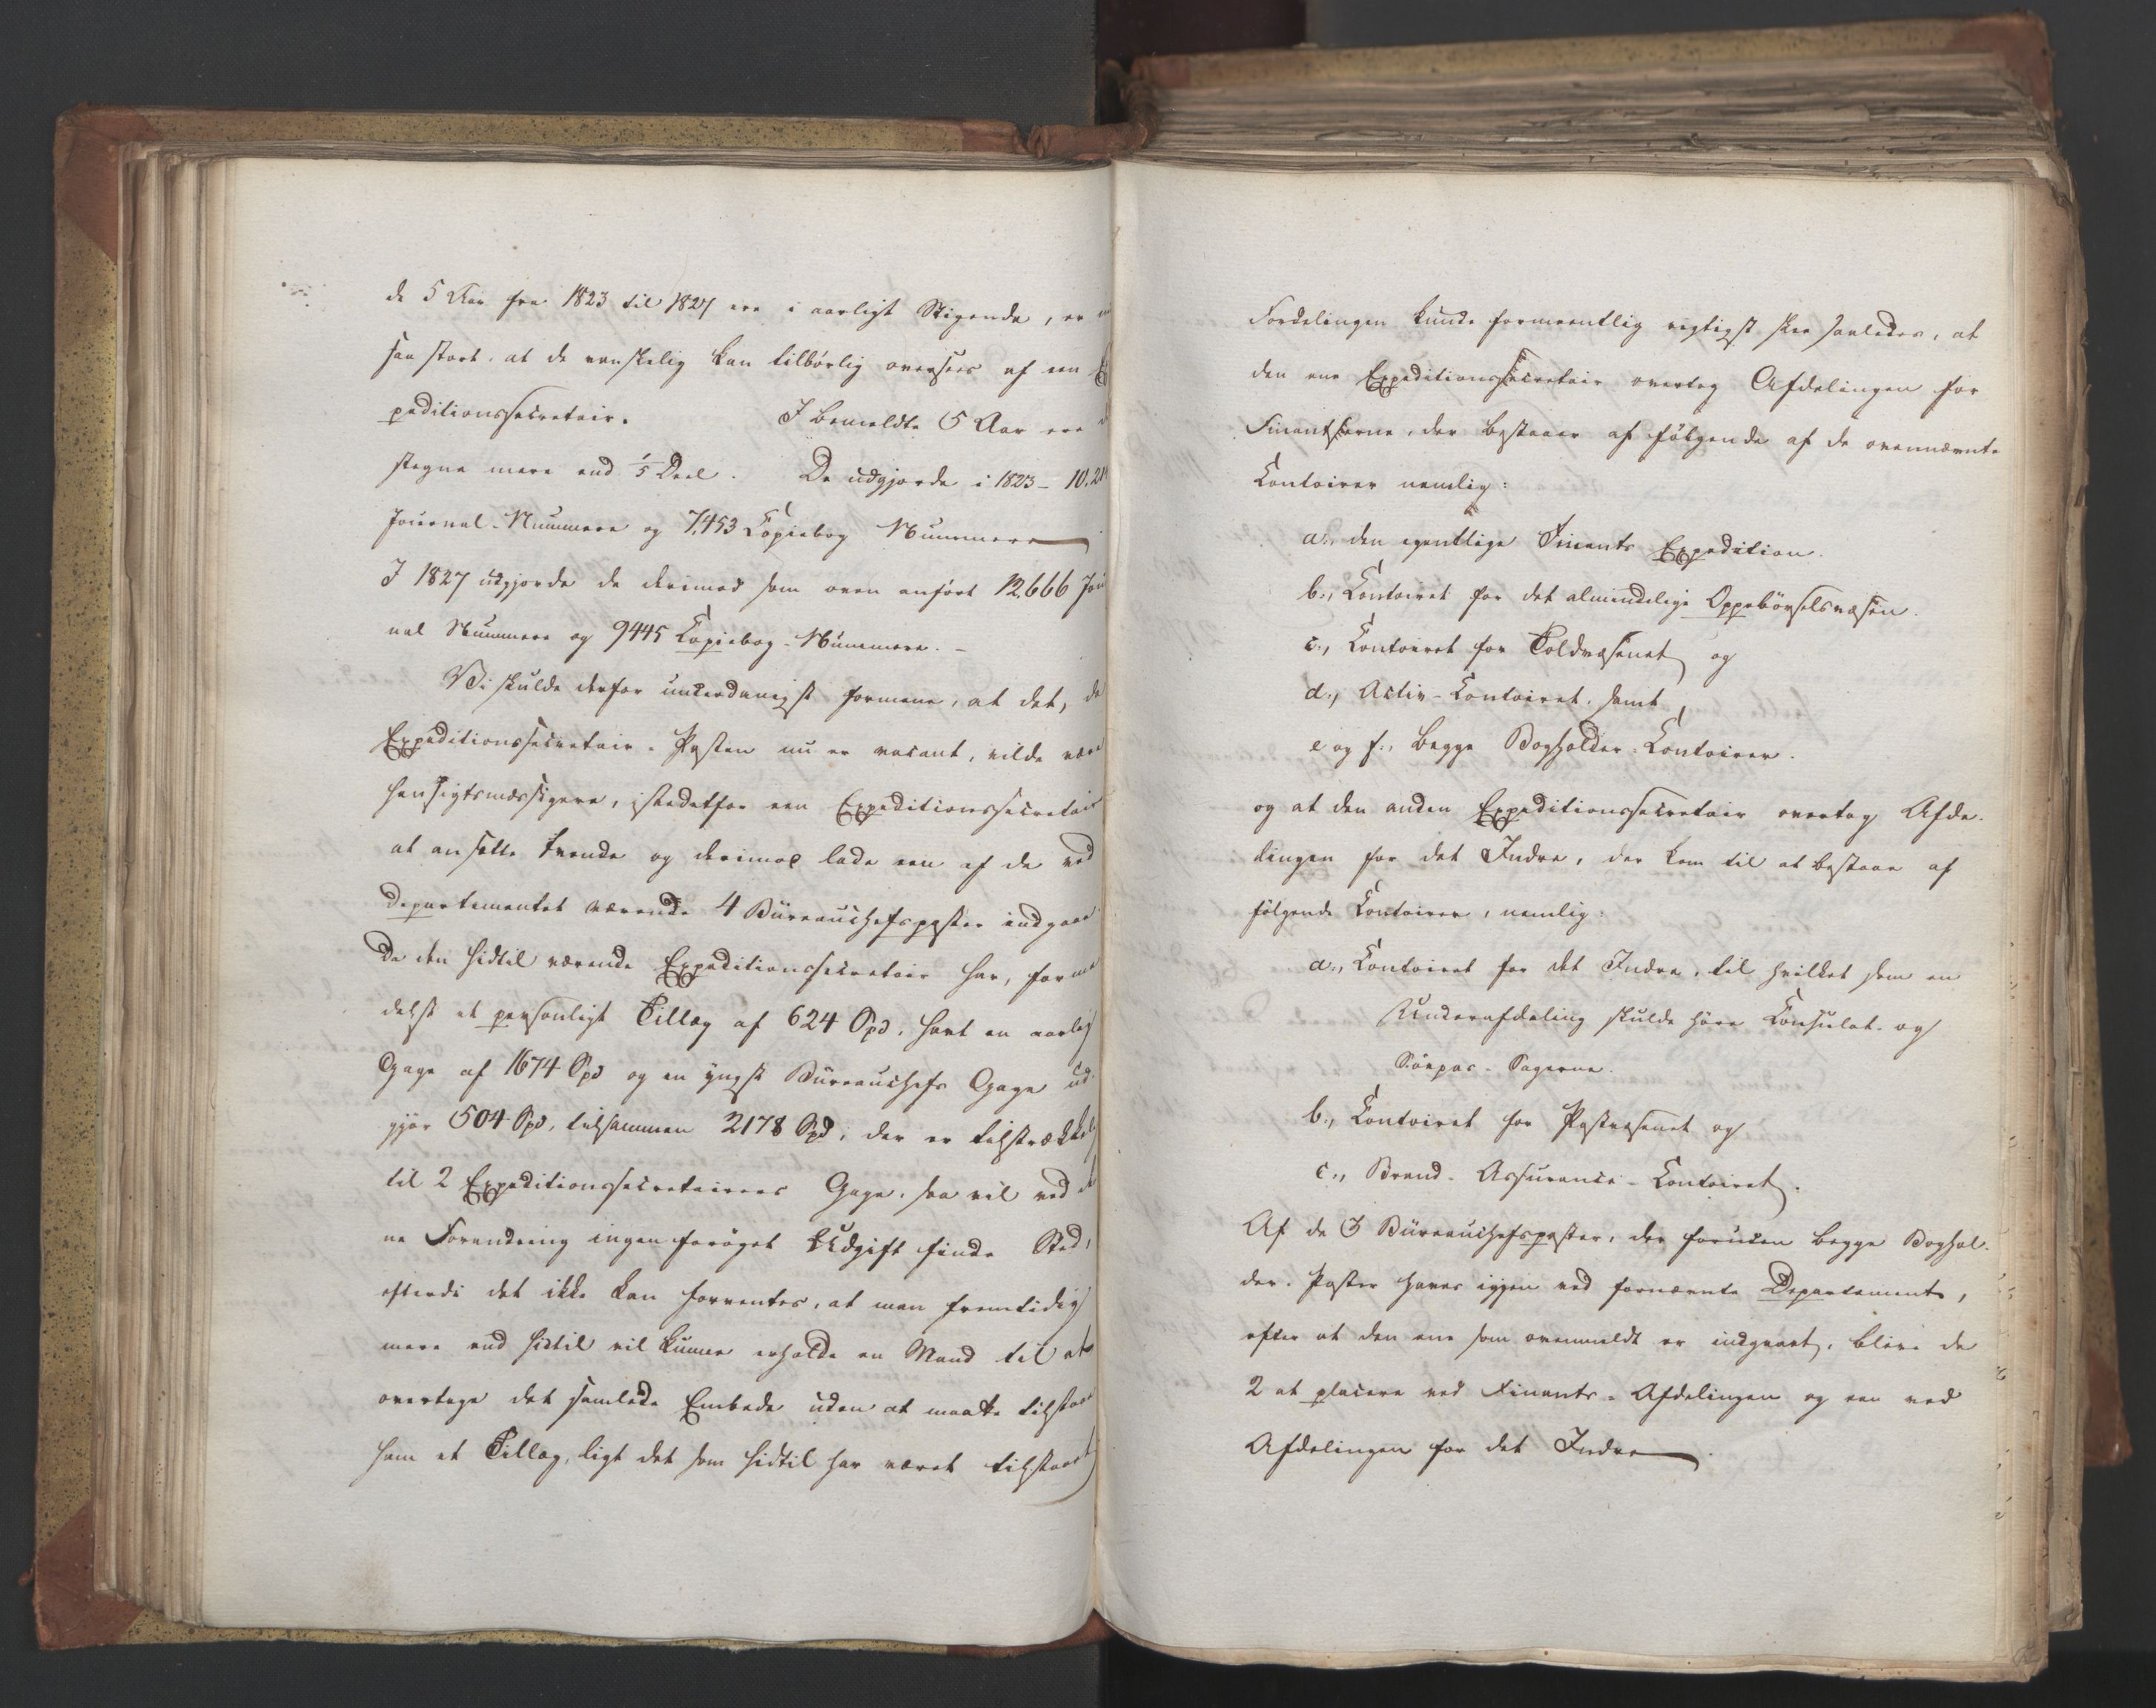 de 5 Aar fra 1823 til 1827 ere i aarligt Stigende, er
saa stort, at de vanskelig kan tilbörlig oversees af een Ex
peditionssecretair. I bemeldte 5 Aar ere
stegne mere end 1/5 Deel. De udgjorde i 1823 - 10.21
Journal-Nummere og 7,453 Copiebog Nummere
I 1827 udgjorde de derimod som oven anfört 12,666 Jour
nal Nummere og 9445 Copiebog-Nummere. -
Vi skulde derfor underdanigst formene, at det, da
Expeditionssecretair-Posten nu er vacant, vilde være
hensigtsmæssigere, istedetfor een Expeditionssecretair
at ansætte tvende og derimod lade een af de ved
Departementet værende 4 Büreauchefsposter indgaae.
Da den hidtil værende Expeditionssecretair har, forme
delst et personligt Tillæg af 624 Spd, havt en aarlig
Gage af 1674 Spd og en yngst Büreauchefs Gage ud-
gjör 504 Spd, tilsammen 2178 Spd, der er tilstrækkelig
til 2 Expeditionssecretairers Gage, saa vil ved den
ne Forandring ingen foröget Udgift finde Sted,
efterdi det ikke kan forventes, at man fremtidig
mere end hidtil vil kunne erholde en Mand til at
overtage det samlede Embede uden at maatte tilstaae
ham et Tillæg, ligt det som hidtil har været tilstaaet
Fordelingen kunde formeentlig rigtigst skee saaledes, at
den ene Expeditionssecretair overtog Afdelingen for
Finantserne, der bestaaer af fölgende af de ovennævnte
Contoirer nemlig:
a., den egentlige Finants Expedition.
b., Contoiret for det almindelige Oppebörselsvæsen.
c., Contoiret for Toldvæsenet og
d., Activ-Contoiret, samt
e og f., begge Bogholder-Contoirer.
og at den anden Expeditionssecretair overtog Afde-
lingen for det Indre, der kom til at bestaae af
fölgende Contoirer, nemlig:
a., Contoiret for det Indre, til hvilket som en
Underafdeling skulde höre Consulat- og
Söepas-Sagerne.
b., Contoiret for Postvæsenet og
c., Brand-Assurance-Contoiret.
Af de 3 Büreauchefsposter, der foruden begge Boghol-
der-Poster haves igjen ved fornævnte Departement,
efter at den ene som ovenmeldt er indgaaet, blive de
2 at placere ved Finants-Afdelingen og een ved
Afdelingen for det Indre.